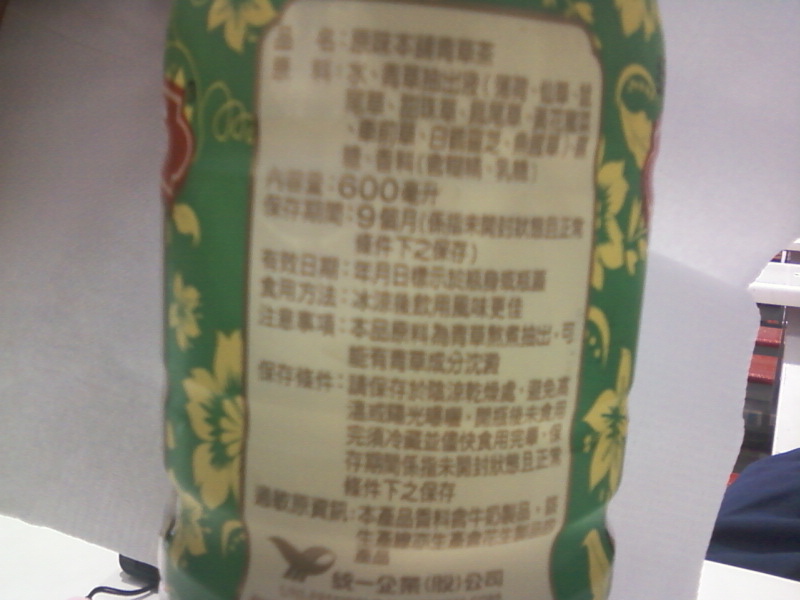 品 名：原味本舖青草茶
原 料：水、青草抽出液(薄荷、仙草、
尾草、甜珠草、鳳尾草、
草、日
、香料(含糊精、乳糖)
內容量：600毫升
保存期間：9個月(係指未開封狀態且正常
條件下之保存)
有效日期：年月日標示於瓶身或瓶蓋
食用方法：冰涼後飲用風味更佳
注意事項：本品原料為青草熬煮抽出，可
能有青草成分沈澱
保存條件：請保存於陰涼乾燥處，避免高
溫或陽光曝曬，開瓶後未食用
完須冷藏並儘快食用完畢，保
存期間係指未開封狀態且正常
條件下之保存
過敏原資訊：本產品香料含牛奶製品，該
生產線亦生產含花生製品的
產品
統一企業(股)公司